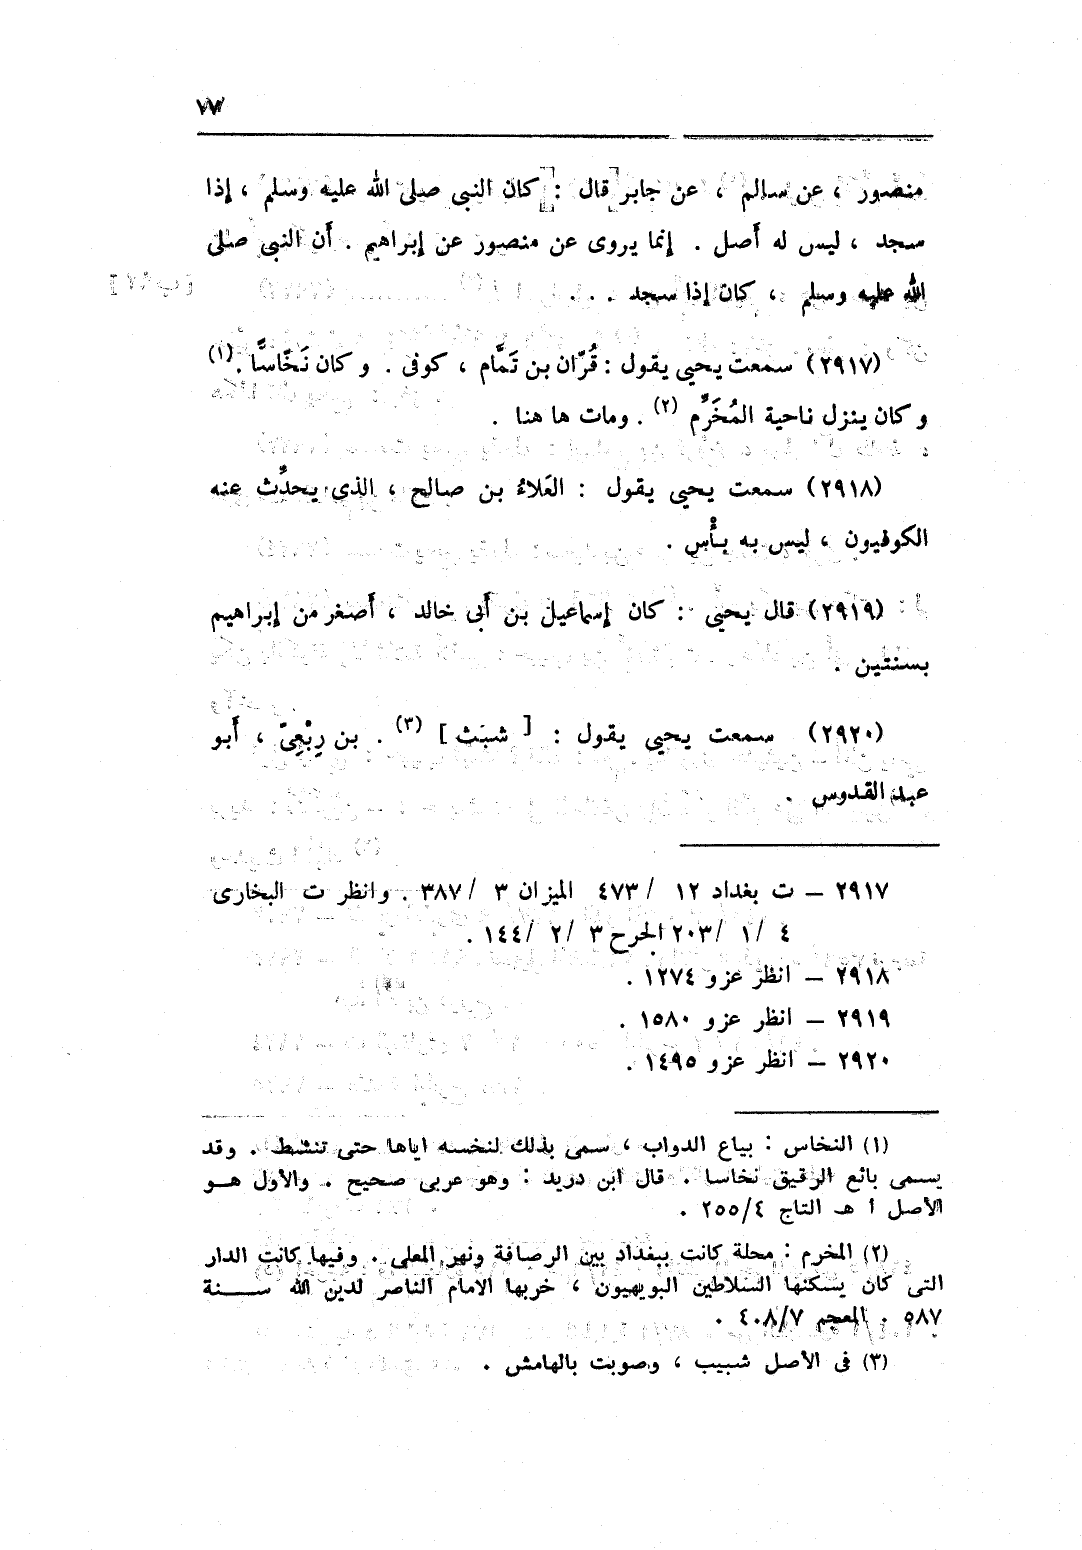 منصور ، عن سالم ، عن جابر قال : [ كان النبى صلى الله عليه وسلم ، إذا
سجد ، ليس له أصل . إنما يروى عن منصور عن إبراهيم . أن النبى صلى
الله عليه وسلم ، كان إذا سجد . . .
(٢٩١٧) سمعت يحيى يقول : قُرّان بن تَمَّام ، كوفى . وكان نَخّاسًّا . (١)
وكان ينزل ناحية المُخَرَّم (٢) . ومات ها هنا .
(٢٩١٨) سمعت يحيى يقول : العَلاءُ بن صالح ، الذى يحدِّث عنه
الكوفيون ، ليس به بأْس .
(٢٩١٩) قال يحيى : كان إسماعيل بن أَبى خالد ، أَصغر من إبراهيم
بسنتين .
(٢٩٢٠) سمعت يحيى يقول : [ شبَث ] (٣) . بن رِبْعِىّ ، أَبو
عبد القدوس .
٢٩١٧ – ت بغداد ١٢ / ٤٧٣ الميزان ٣ / ٣٨٧ . وانظر ت البخارى
٤ / ١ / ٢٠٣ الجرح ٣ / ٢ / ١٤٤ .
٢٩١٨ – انظر عزو ١٢٧٤ .
٢٩١٩ – انظر عزو ١٥٨٠ .
٢٩٢٠ – انظر عزو ١٤٩٥ .
(١) النخاس : بياع الدواب ، سمى بذلك لنخسه اياها حتى تنشط . وقد
يسمى بائع الرقيق نخاسا . قال ابن دريد : وهو عربى صحيح . والأول هـو
الأصل ا هـ التاج ٢٥٥/٤ .
(٢) المخرم : محلة كانت ببغداد بين الرصافة ونهر المعلى . وفيها كانت الدار
التى كان يسكنها السلاطين البويهيون ، خربها الامام الناصر لدين الله ســـنة
٥٨٧ . المعجم ٤٠٨/٧ .
(٣) فى الأصل شبيب ، وصوبت بالهامش .